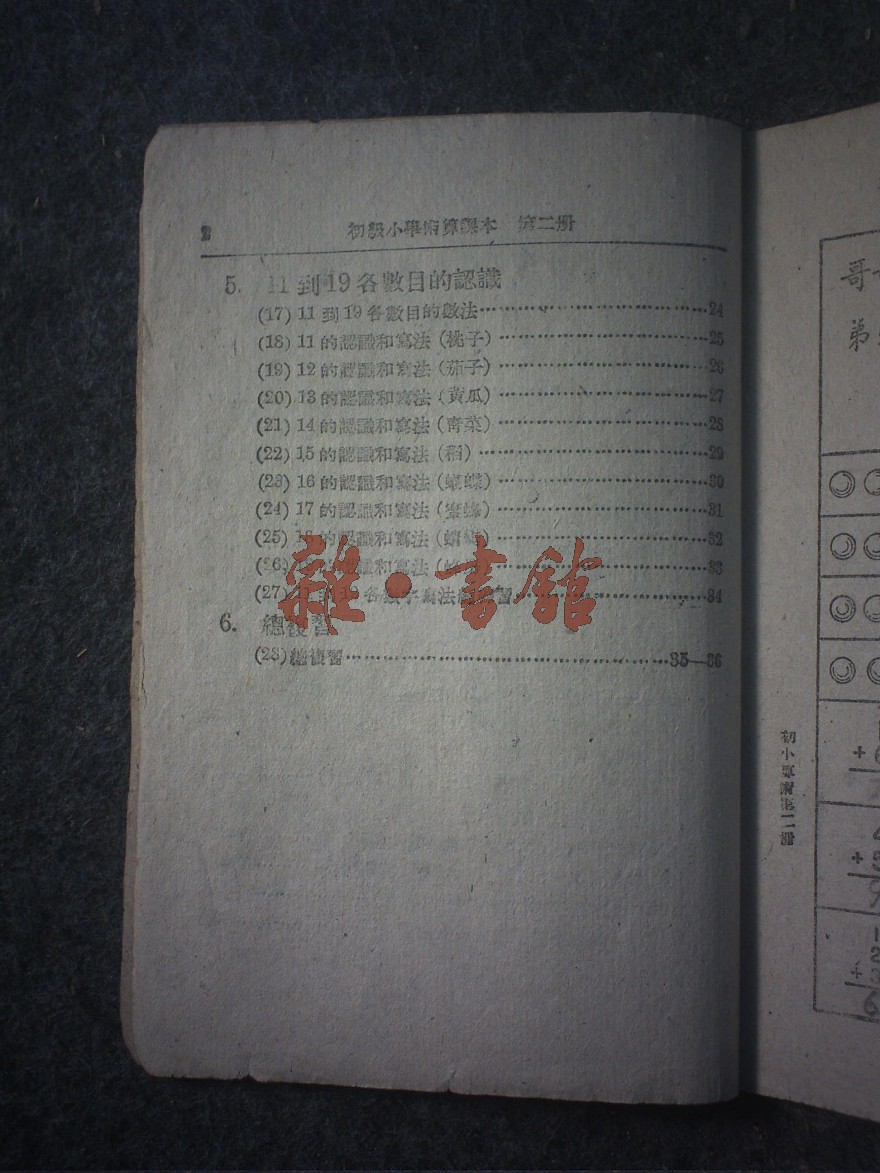 2 初級小學術算課本 第二册
5. 11到19各數目的認識
(17) 11到19各數目的數法……24
(18) 11的認識和寫法(桃子)……25
(19) 12的認識和寫法(茄子)……26
(20) 13的認識和寫法(黄瓜)……27
(21) 14的認識和寫法(青菜)……28
(22) 15的認識和寫法(稻)……29
(23) 16的認識和寫法(蝴蝶)……30
(24) 17的認識和寫法(蜜蜂)……31
(25) 18的認識和寫法……32
(26) 的認識和寫法……33
(27) 11到19各數字寫法 習……34
6. 總複習
(28) 總複習……35—36
雜·書館
哥
弟
初小算術第二册